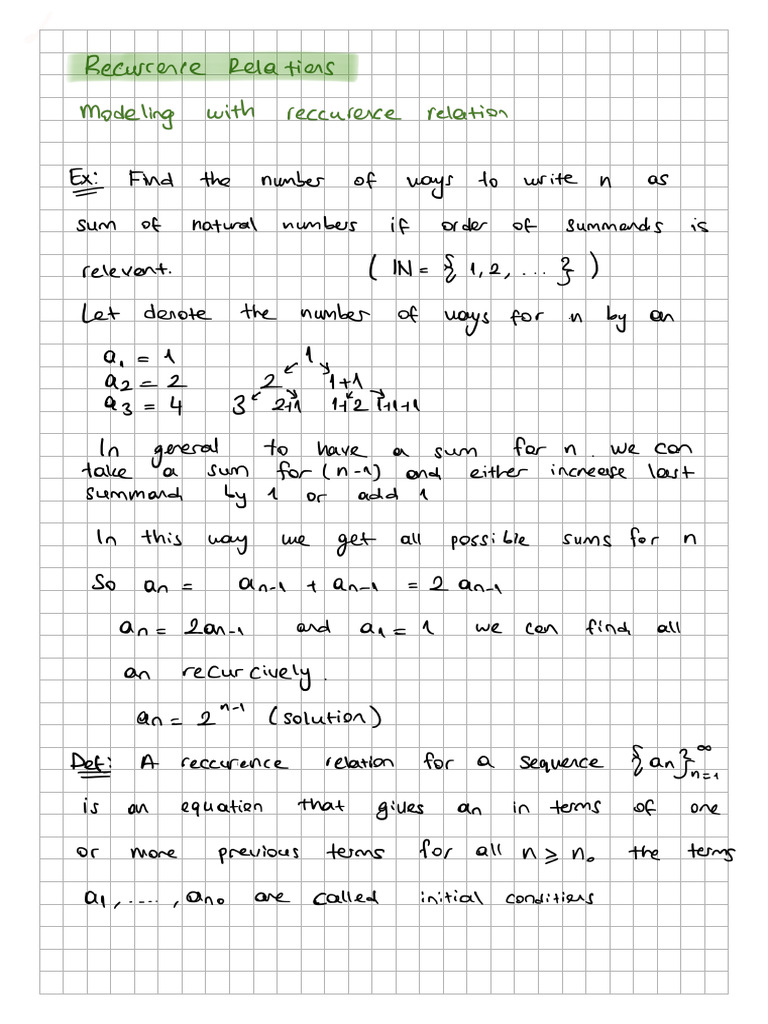 Recurrence Relations
Modeling with reccurence relation
Ex: Find the number of ways to write n as
sum of natural numbers if order of summands is
relevent. ( IN = { 1, 2, ... } )
Let denote the number of ways for n by an
a₁ = 1 1
a₂ = 2 2 1+1
a₃ = 4 3 2+1 1+2 1+1+1
In general to have a sum for n. we can
take a sum for (n-1) and either increase last
summand by 1 or add 1
In this way we get all possible sums for n
So an = an-1 + an-1 = 2 an-1
an = 2an-1 and a₁ = 1 we can find all
an recurcively.
an = 2^n-1 (solution)
Def: A reccurence relation for a sequence {an}∞n=1
is an equation that gives an in terms of one
or more previous terms for all n ≥ n₀ the terms
a₁, ...., an₀ are called initial conditions